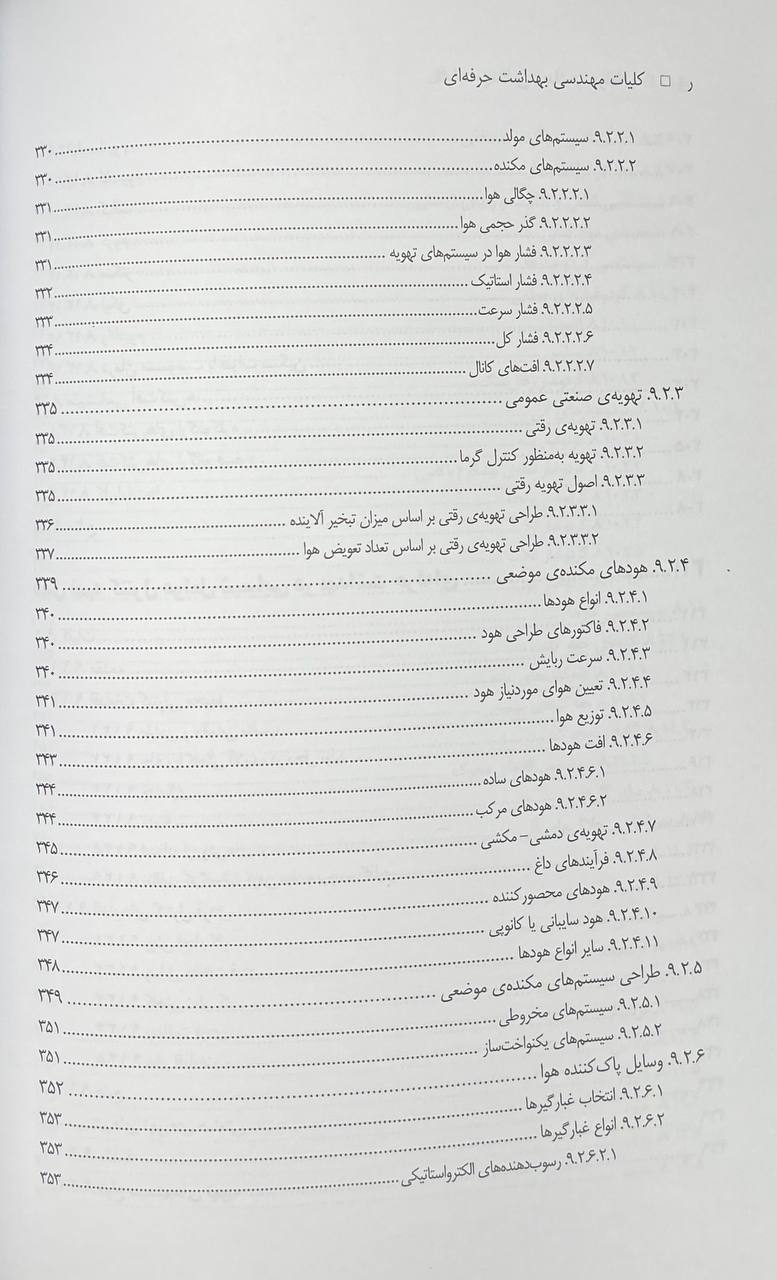 ر □ کلیات مهندسی بهداشت حرفه‌ای
۹.۲.۲.۱. سیستم‌های مولد ........ ۳۳۰
۹.۲.۲.۲. سیستم‌های مکنده ........ ۳۳۰
۹.۲.۲.۲.۱. چگالی هوا ........ ۳۳۱
۹.۲.۲.۲.۲. گذر حجمی هوا ........ ۳۳۱
۹.۲.۲.۲.۳. فشار هوا در سیستم‌های تهویه ........ ۳۳۱
۹.۲.۲.۲.۴. فشار استاتیک ........ ۳۳۲
۹.۲.۲.۲.۵. فشار سرعت ........ ۳۳۳
۹.۲.۲.۲.۶. فشار کل ........ ۳۳۴
۹.۲.۲.۲.۷. افت‌های کانال ........ ۳۳۴
۹.۲.۳. تهویه‌ی صنعتی عمومی ........ ۳۳۵
۹.۲.۳.۱. تهویه‌ی رقتی ........ ۳۳۵
۹.۲.۳.۲. تهویه به‌منظور کنترل گرما ........ ۳۳۵
۹.۲.۳.۳. اصول تهویه رقتی ........ ۳۳۵
۹.۲.۳.۳.۱. طراحی تهویه‌ی رقتی بر اساس میزان تبخیر آلاینده ........ ۳۳۶
۹.۲.۳.۳.۲. طراحی تهویه‌ی رقتی بر اساس تعداد تعویض هوا ........ ۳۳۷
۹.۲.۴. هودهای مکنده‌ی موضعی ........ ۳۳۹
۹.۲.۴.۱. انواع هودها ........ ۳۴۰
۹.۲.۴.۲. فاکتورهای طراحی هود ........ ۳۴۰
۹.۲.۴.۳. سرعت ربایش ........ ۳۴۰
۹.۲.۴.۴. تعیین هوای موردنیاز هود ........ ۳۴۱
۹.۲.۴.۵. توزیع هوا ........ ۳۴۱
۹.۲.۴.۶. افت هودها ........ ۳۴۳
۹.۲.۴.۶.۱. هودهای ساده ........ ۳۴۴
۹.۲.۴.۶.۲. هودهای مرکب ........ ۳۴۴
۹.۲.۴.۷. تهویه‌ی دمشی- مکشی ........ ۳۴۵
۹.۲.۴.۸. فرآیندهای داغ ........ ۳۴۶
۹.۲.۴.۹. هودهای محصورکننده ........ ۳۴۷
۹.۲.۴.۱۰. هود سایبانی یا کانوپی ........ ۳۴۷
۹.۲.۴.۱۱. سایر انواع هودها ........ ۳۴۸
۹.۲.۵. طراحی سیستم‌های مکنده‌ی موضعی ........ ۳۴۹
۹.۲.۵.۱. سیستم‌های مخروطی ........ ۳۵۱
۹.۲.۵.۲. سیستم‌های یکنواخت‌ساز ........ ۳۵۱
۹.۲.۶. وسایل پاک‌کننده هوا ........ ۳۵۲
۹.۲.۶.۱. انتخاب غبارگیرها ........ ۳۵۳
۹.۲.۶.۲. انواع غبارگیرها ........ ۳۵۳
۹.۲.۶.۲.۱. رسوب‌دهنده‌های الکترواستاتیکی ........ ۳۵۳